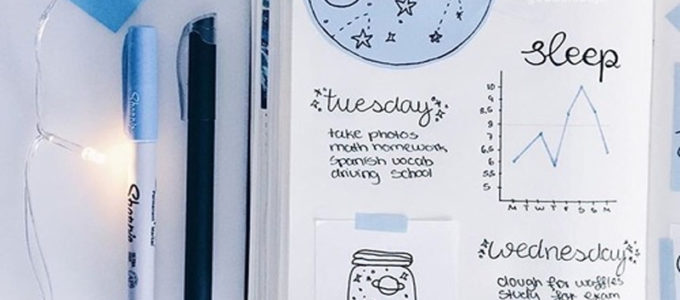 Sharpie
Sharpie
sleep
tuesday
take photos
math homework
spanish vocab
driving school
10
9
8.5
7
6.5
6
5.5
5
M T W T F S S M
wednesday
dough for waffles
study for exam